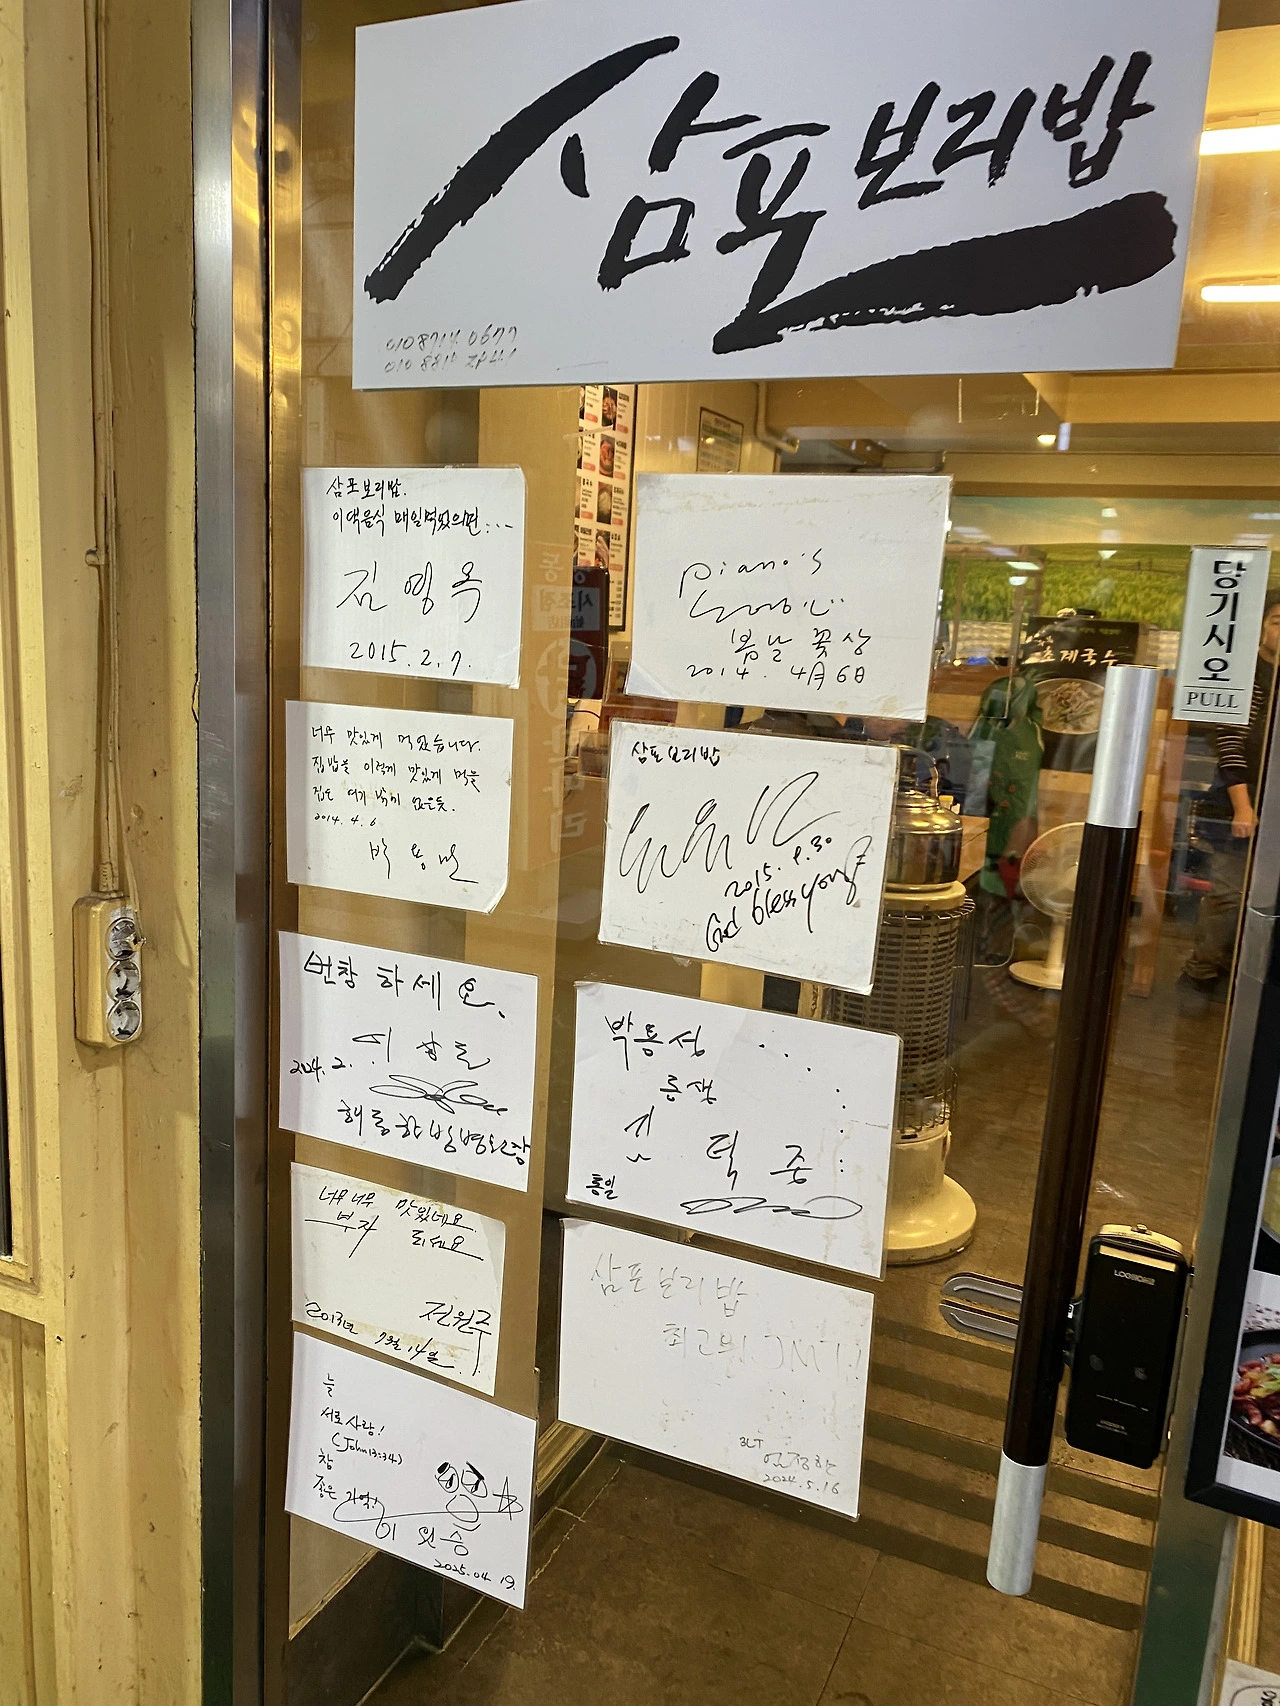 삼포보리밥
010 8714 0677
삼포보리밥.
이댁음식 매일먹었으면...
김영옥
2015. 2. 7.
piano's
봄날 꽃상
2014. 4月 6日
너무 맛있게 먹었습니다.
집밥을 이렇게 맛있게 먹을
집은 여기 밖에 없을듯.
2014. 4. 6
박용날
삼포보리밥
2015. 9. 30
God bless you
번창 하세요.
2024. 2.
박동성
통일
너무너무 맛있네요
부자 되세요
전원주
2013년 7월 14일
삼포보리밥
최고의 JMT!!
2024. 5. 16
늘
서로 사랑!
(John 13:34)
참
좋은 기억!
이원승
2025. 04. 19.
당기시오
PULL
초계국수